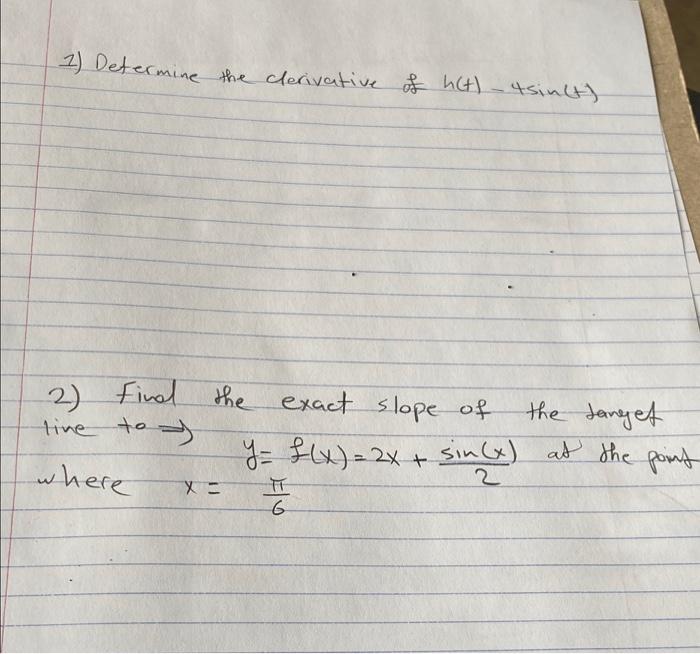 1) Determine the derivative of h(t) - 4sin(t)
2) Find the exact slope of the tanget
line to ⇒
y = f(x) = 2x + sin(x)/2 at the point
where x = π/6